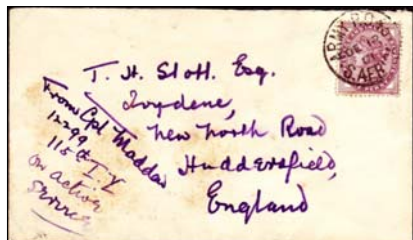 ARMY P.O.
S. AFR
T. H. Stott. Esq.
Ivydene,
New North Road
Huddersfield,
England
From Cpl Maddas
12299
115th I.Y
on active
service